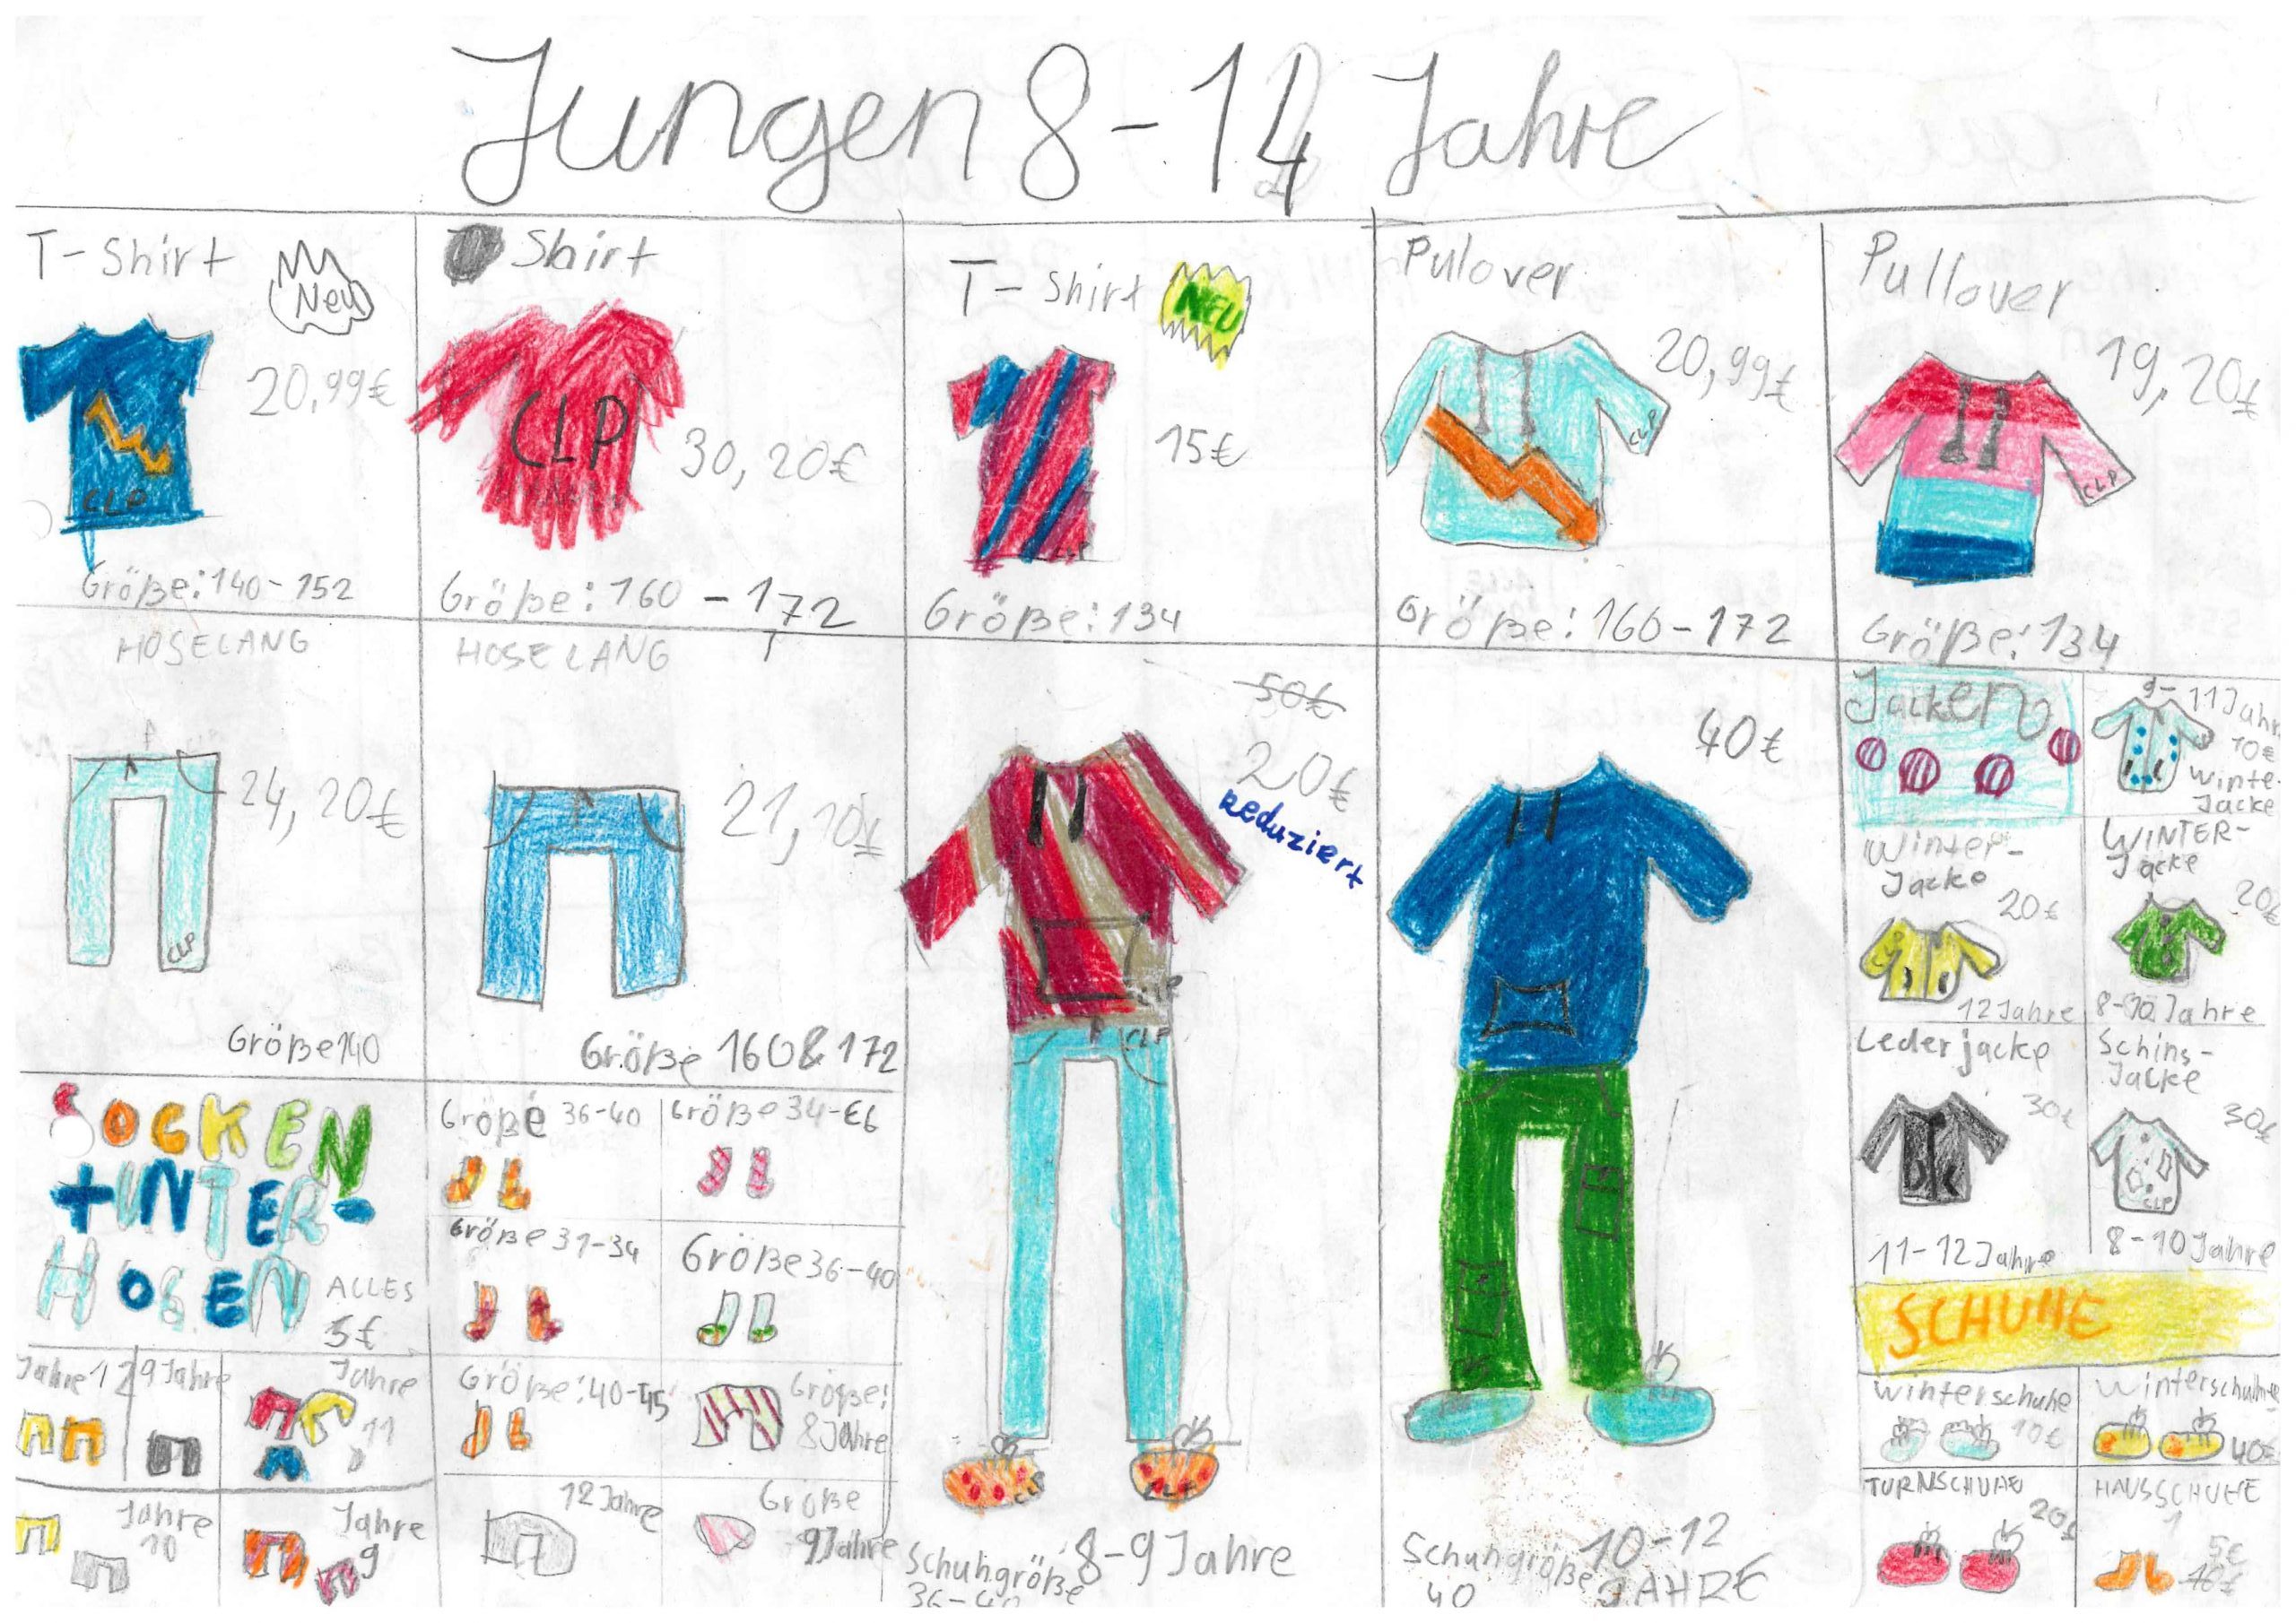 Jungen 8-14 Jahre
T-Shirt
Neu
20,99€
CLP
Größe: 140-152
Shirt
CLP
30,20€
Größe: 160-172
T-Shirt
NEU
15€
CLP
Größe: 134
Pulover
20,99€
CLP
Größe: 160-172
Pullover
19,20€
CLP
Größe: 134
HOSE LANG
24,20€
CLP
Größe 140
HOSE LANG
Größe 160 & 172
50€
20€
Reduziert
CLP
CLP
Schuhgröße
36-40
8-9 Jahre
40€
Schuhgröße
40
10-12
JAHRE
Jacken
9-11 Jahr
10€
Winter-
Jacke
Winter-
Jacke
20€
12 Jahre
WINTER-
Jacke
20€
8-10 Jahre
Lederjacke
30€
11-12 Jahre
Schins-
Jacke
30€
CLP
8-10 Jahre
SOCKEN
+UNTER-
HOSEN
ALLES
5€
Größe 36-40
Größe 34-
Größe 31-34
Größe 36-40
Größe: 40-45
Größe:
8 Jahre
12 Jahre
Größe
9 Jahre
Jahre 12
9 Jahre
Jahre
11
Jahre
10
Jahre
9
SCHUHE
Winterschuhe
10€
Winterschuhe
40€
TURNSCHUHE
20€
HAUSSCHUHE
5€
10€